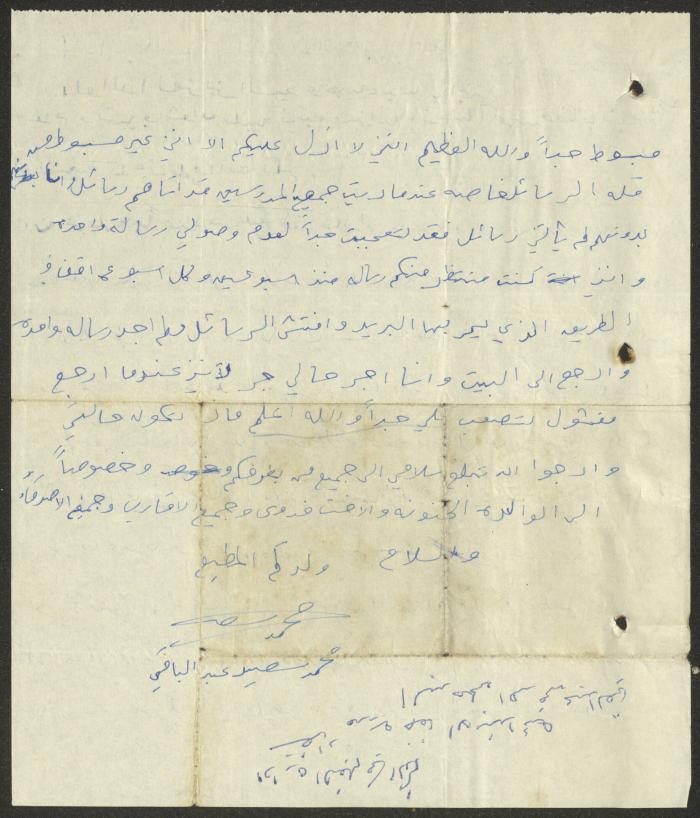 مبسوط جداً والله العظيم الذي لا ازل عليكم الا انني غير مبسوط من
قلة الرسائل خاصه عندما رايت جميع المدرسين قد اتاهم رسائل وانا
بدونهم لم يأتي رسائل فقد تعجبت جداً لعدم وصولي رسالة واحده
وانني كنت منتظر منكم رساله منذ اسبوعين وكل اسبوع اقف في
الطريق الذي يمر بها البريد وافتش الرسائل ولم اجد رساله واحده
وارجع الى البيت وانا اجر حالي جر لأنني عندما ارجع
مفشول تصعب علي جداً والله اعلم ماذا تكون حالتي
وارجوا ان تبلغو سلامي الى جميع من بطرفكم وخصوصاً
الى الوالدة الحنونه والاخت فدوى وجميع الاقارب وجميع الاصدقاء
والسلام ولدكم المطيع
محمد سعيد
محمد سعيد عبد الباقي